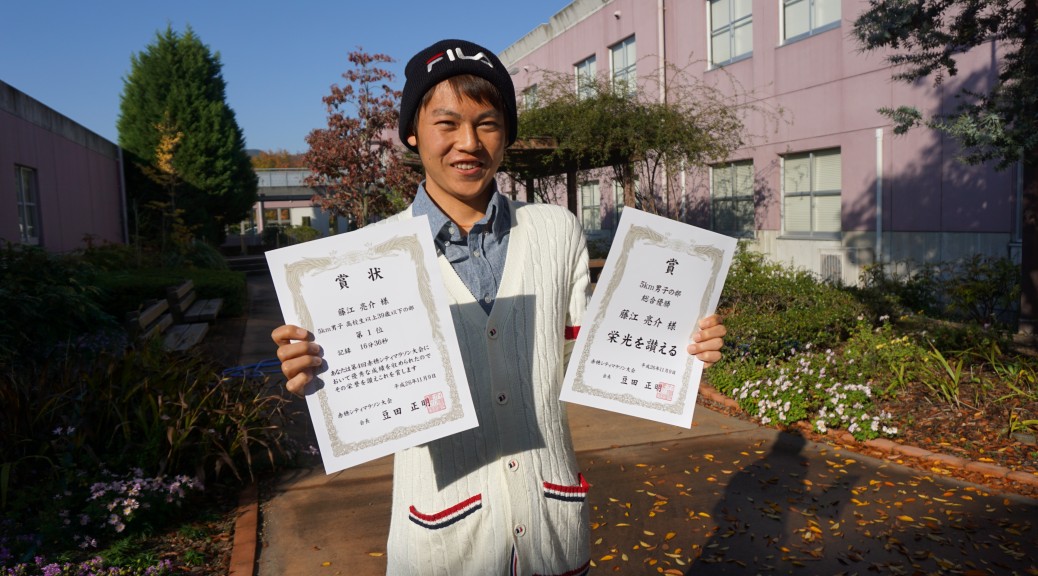 FILA
賞状
藤江 亮介 様
5km男子 高校生以上39歳以下の部
第1位
記録 16分36秒
あなたは第4回赤穂シティマラソン大会に
おいて優秀な成績を収められたので
その栄誉を讃えこれを賞します
平成26年11月9日
赤穂シティマラソン大会
会長 豆田 正明
賞
5km男子の部
総合優勝
藤江 亮介 様
栄光を讃える
平成26年11月9日
赤穂シティマラソン大会
会長 豆田 正明